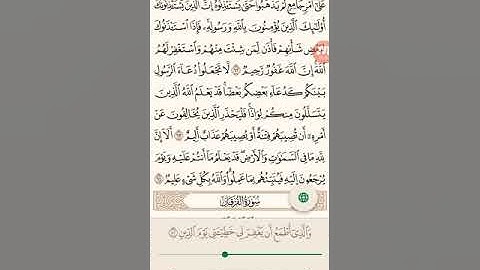 عَلَىٰٓ أَمْرٍ جَامِعٍ لَّمْ يَذْهَبُوا۟ حَتَّىٰ يَسْتَـْٔذِنُوهُ إِنَّ ٱلَّذِينَ يَسْتَـْٔذِنُونَكَ
أُو۟لَـٰٓئِكَ ٱلَّذِينَ يُؤْمِنُونَ بِٱللَّهِ وَرَسُولِهِۦ فَإِذَا ٱسْتَـْٔذَنُوكَ
لِبَعْضِ شَأْنِهِمْ فَأْذَن لِّمَن شِئْتَ مِنْهُمْ وَٱسْتَغْفِرْ لَهُمُ
ٱللَّهَ إِنَّ ٱللَّهَ غَفُورٌ رَّحِيمٌ ۝ لَّا تَجْعَلُوا۟ دُعَآءَ ٱلرَّسُولِ
بَيْنَكُمْ كَدُعَآءِ بَعْضِكُم بَعْضًا قَدْ يَعْلَمُ ٱللَّهُ ٱلَّذِينَ
يَتَسَلَّلُونَ مِنكُمْ لِوَاذًا فَلْيَحْذَرِ ٱلَّذِينَ يُخَالِفُونَ عَنْ
أَمْرِهِۦٓ أَن تُصِيبَهُمْ فِتْنَةٌ أَوْ يُصِيبَهُمْ عَذَابٌ أَلِيمٌ ۝ أَلَآ إِنَّ
لِلَّهِ مَا فِى ٱلسَّمَـٰوَٰتِ وَٱلْأَرْضِ قَدْ يَعْلَمُ مَآ أَنتُمْ عَلَيْهِ وَيَوْمَ
يُرْجَعُونَ إِلَيْهِ فَيُنَبِّئُهُم بِمَا عَمِلُوا۟ وَٱللَّهُ بِكُلِّ شَىْءٍ عَلِيمٌ ۝
سُورَةُ الْفُرْقَانِ
وَٱلَّذِىٓ أَطْمَعُ أَن يَغْفِرَ لِى خَطِيٓـَٔتِى يَوْمَ ٱلدِّينِ ۝